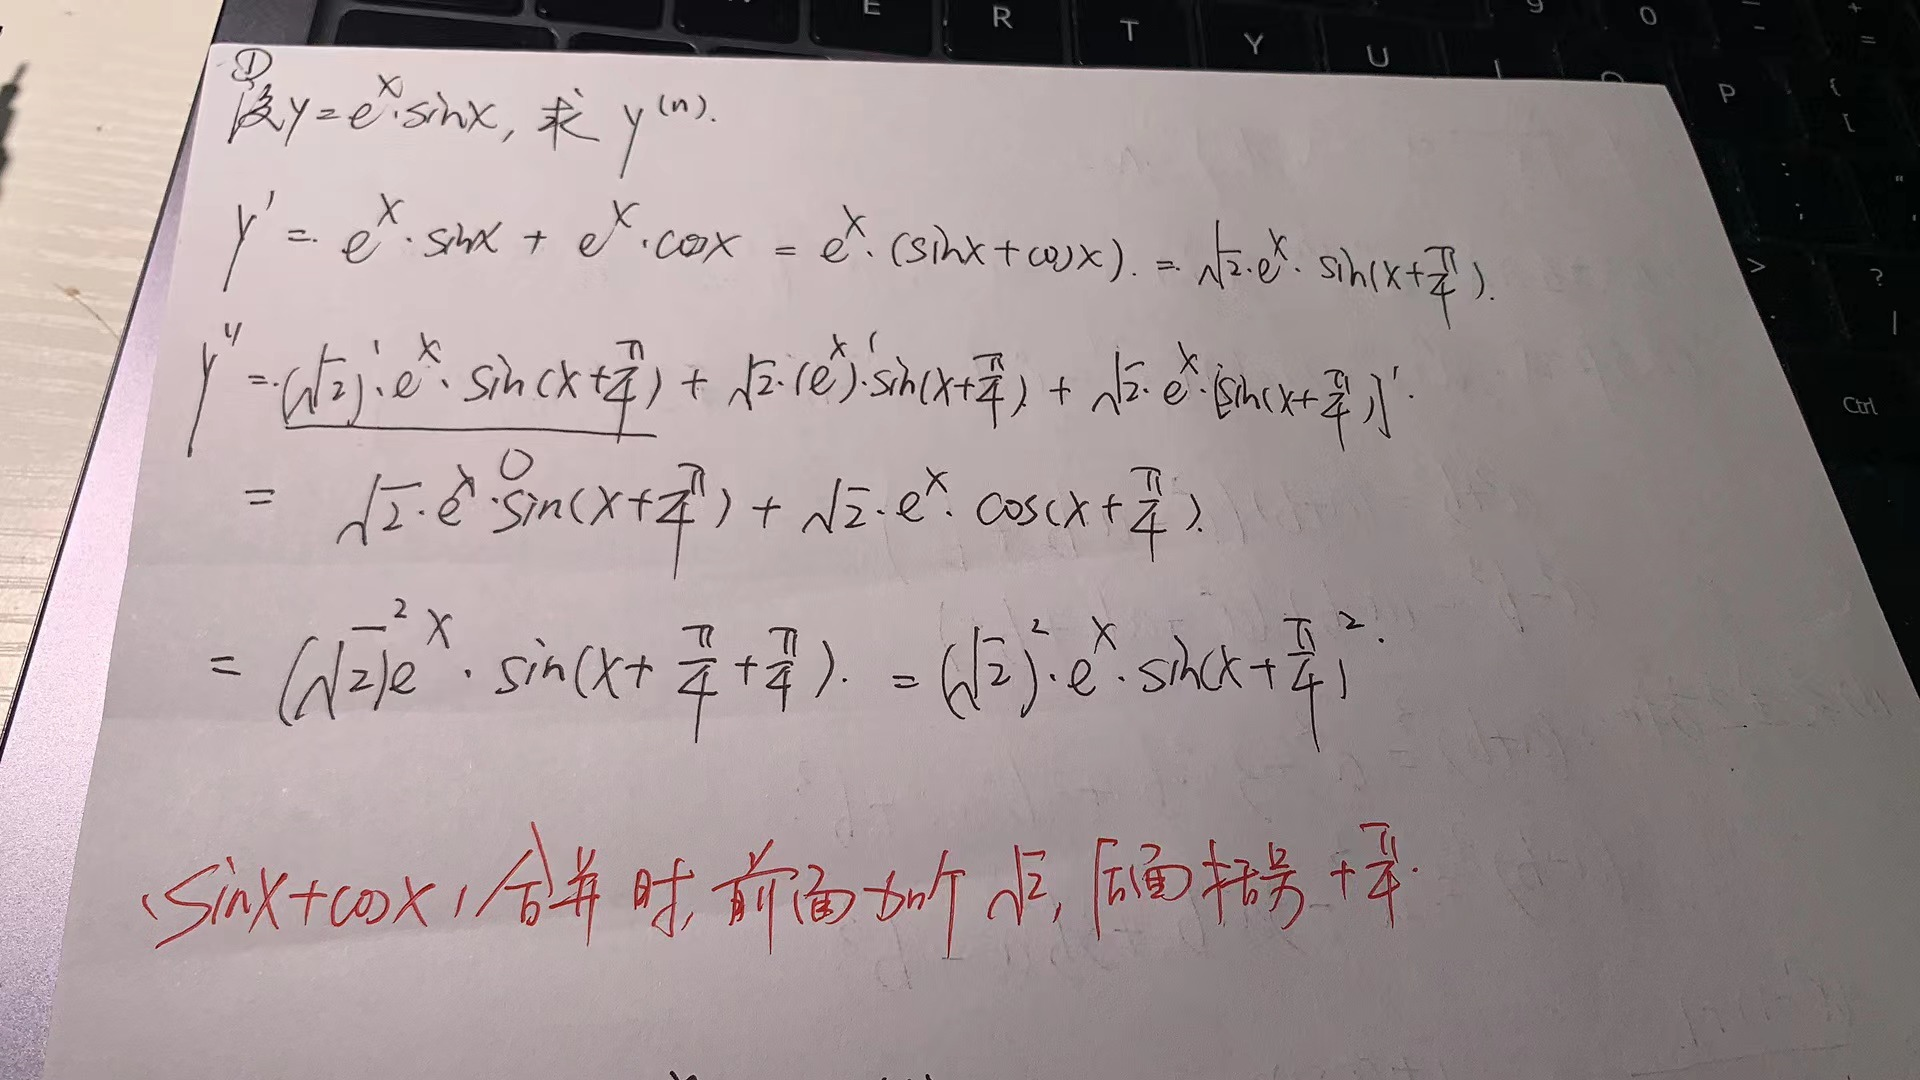 E R T Y U O P
Ctrl
①
设y=eˣ·sinx, 求 y⁽ⁿ⁾.
y' = eˣ·sinx + eˣ·cosx = eˣ·(sinx+cosx). = √2·eˣ·sin(x+π/4).
y'' = (√2)'·eˣ·sin(x+π/4) + √2·(eˣ)'·sin(x+π/4) + √2·eˣ·[sin(x+π/4)]'.
0
= √2·eˣ·sin(x+π/4) + √2·eˣ·cos(x+π/4).
= (√2)²eˣ·sin(x+π/4+π/4). = (√2)²·eˣ·sin(x+π/4)².
(sinx+cosx)合并时, 前面加个√2, 后面括号+π/4.